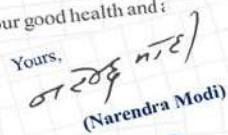 ur good health and
Yours,
नरेन्द्र मोदी
(Narendra Modi)